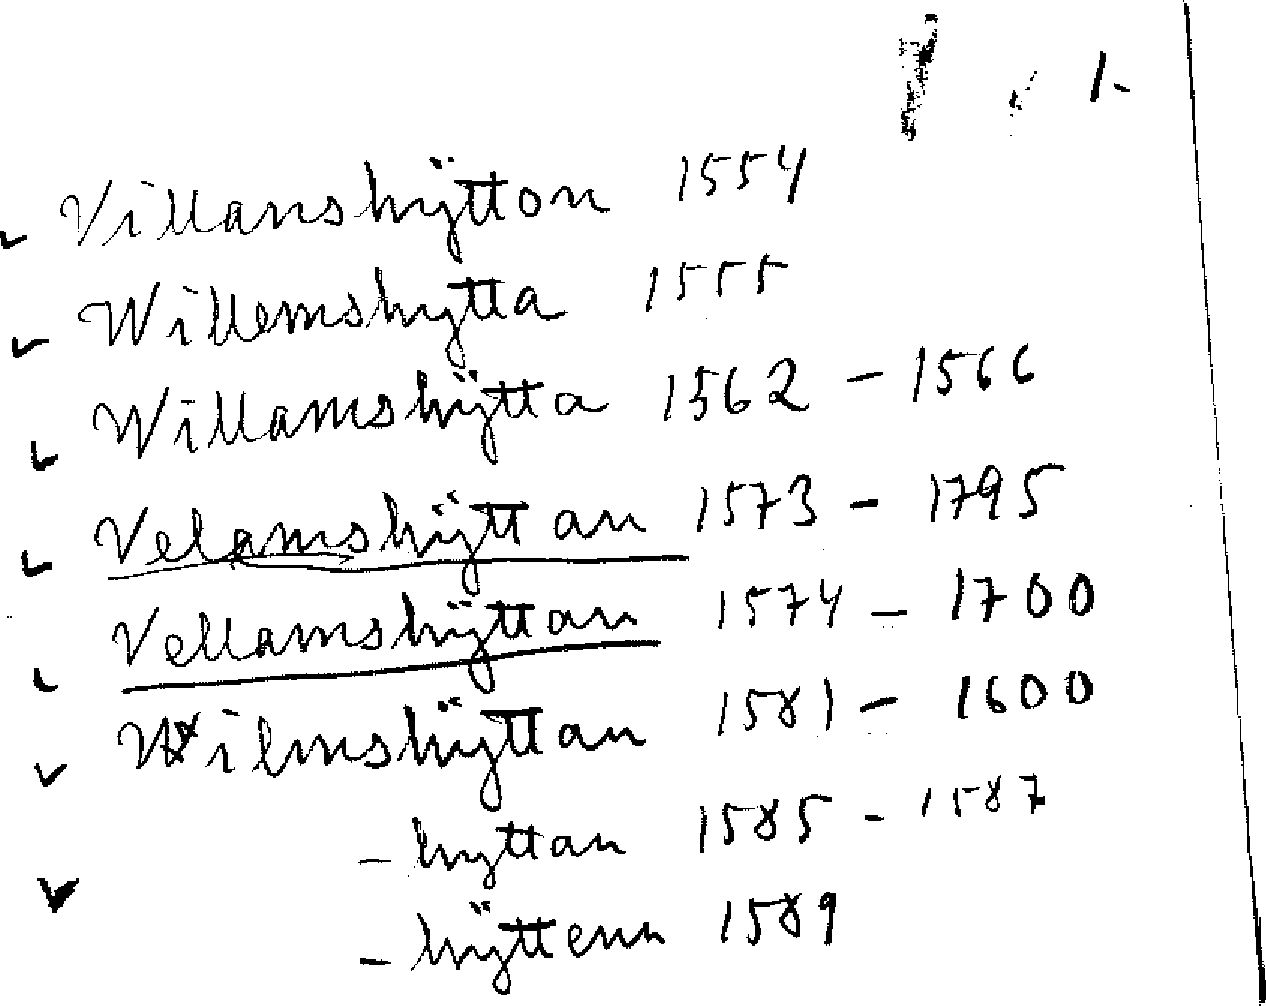 1.
Villamshÿtton 1554
Willemshytta 1555
Willamshÿtta 1562 – 1566
Velamshÿttan 1573 – 1795
Vellamshÿttan 1574 – 1700
Wilmshÿttan 1581 – 1600
– hyttan 1585 – 1587
– hÿttenn 1589